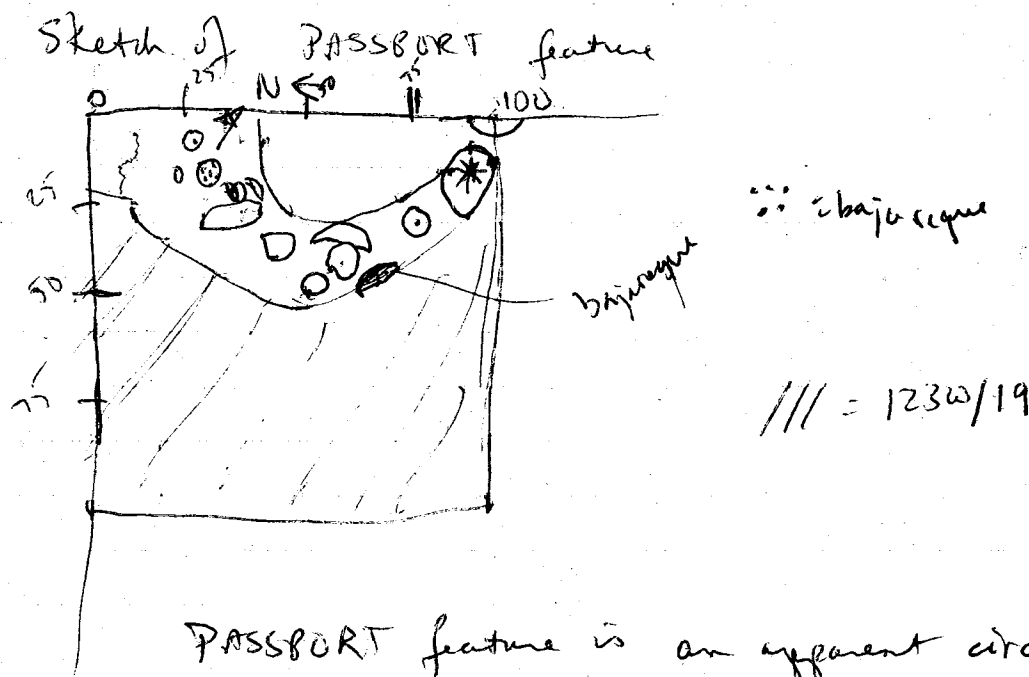 Sketch of PASSPORT feature
0 25 N 50 75 100
25
= bajareque
50
bajareque
75
/// = 1230/19
PASSPORT feature is an apparent circ